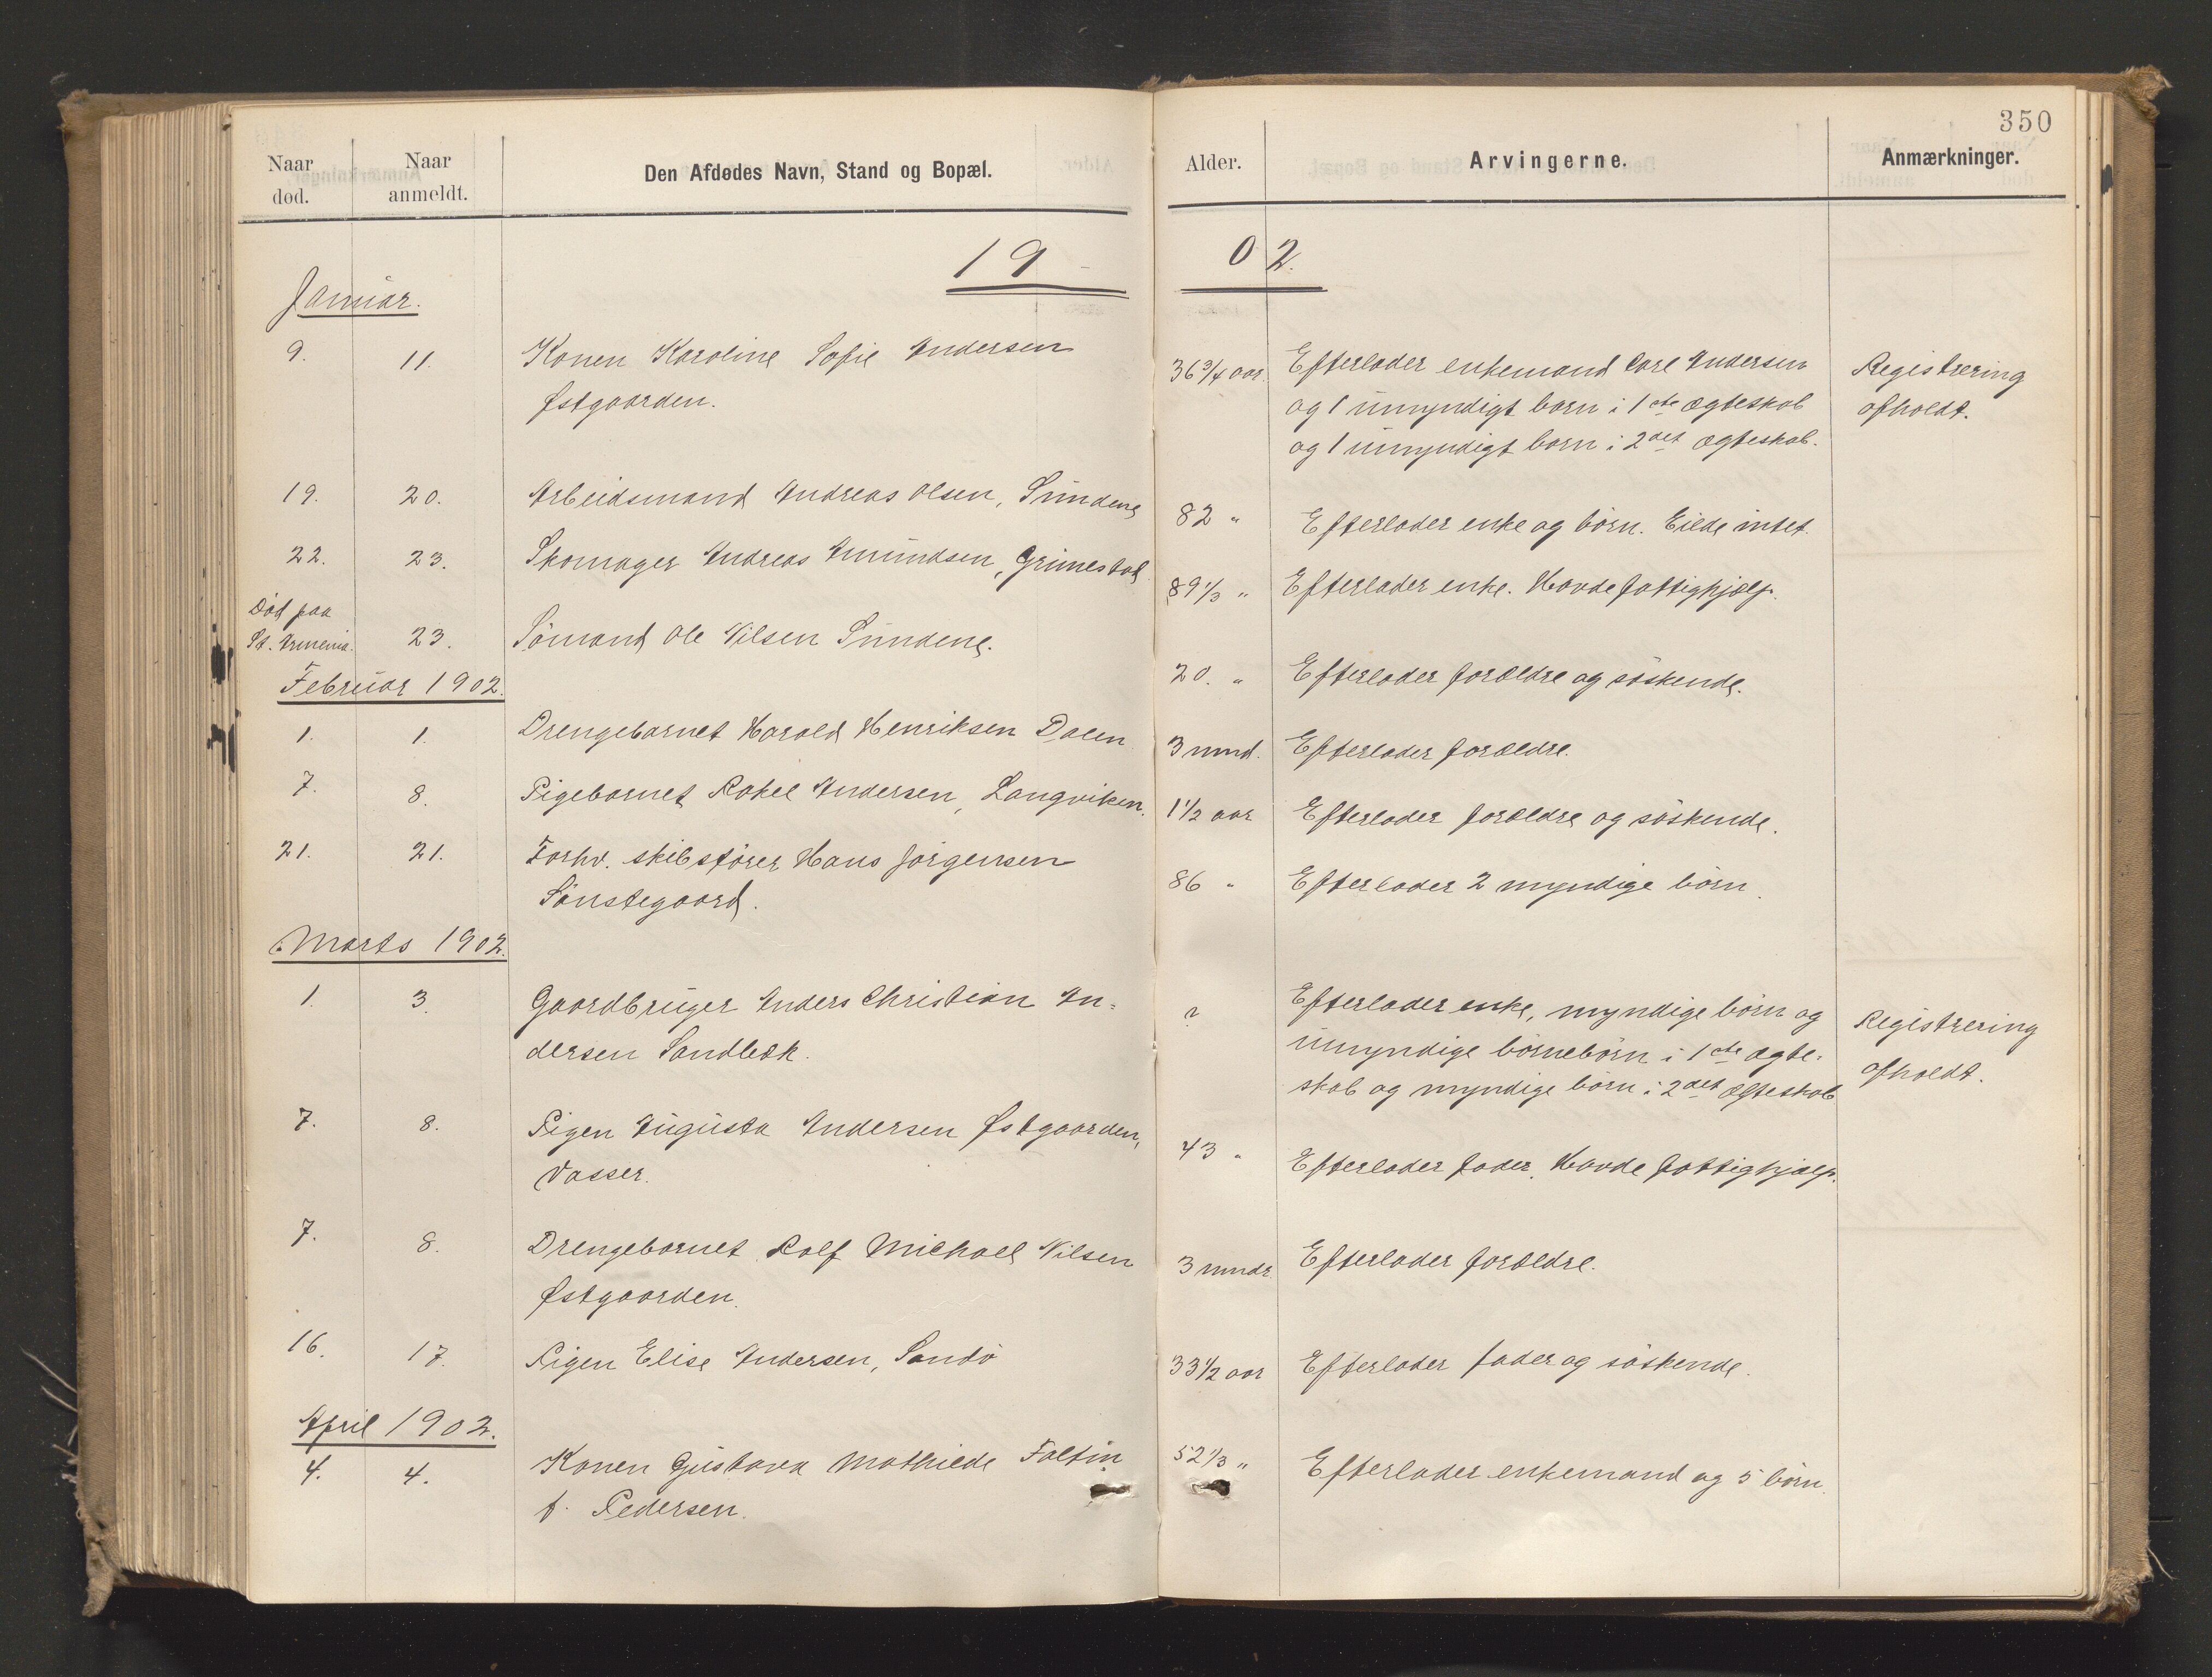 350
Naar død.	Naar anmeldt.	Den Afdødes Navn, Stand og Bopæl.	Alder.	Arvingerne.	Anmærkninger.
19	02.
Januar.
9.	11.	Konen Karoline Sofie Andersen	36 3/4 aar.	Efterlader enkemand Carl Andersen	Registrering
Østgaarden.	og 1 umyndigt barn i 1ste ægteskab	afholdt.
og 1 umyndigt barn i 2det ægteskab.
19.	20.	Arbeidsmand Andreas Olsen, Sundene	82 "	Efterlader enke og börn. Eiede intet.
22.	23.	Skomager Andreas Amundsen, Grimestad	89 1/3 "	Efterlader enke. Havde fattighjælp.
Död paa
St. 	23.	Sömand Ole Nilsen Sundene.	20. "	Efterlader forældre og söskende.
Februar 1902.
1.	1.	Drengebarnet Harald Henriksen Dalen	3 mnd.	Efterlader forældre.
7.	8.	Pigebarnet Rakel Andersen, Langviken.	1 1/2 aar	Efterlader forældre og söskende.
21.	21.	Forhv. skibsförer Hans Jörgensen	86 "	Efterlader 2 myndige börn.
Sönstegaard.
Marts 1902.
1.	3.	Gaardbruger Anders Christian An-	?	Efterlader enke, myndige börn og	Registrering
dersen Sandbæk.	umyndige börnebörn i 1ste ægte-	afholdt.
skab og myndige börn i 2det ægteskab
7.	8.	Pigen Augusta Andersen Østgaarden,	43 "	Efterlader fader. Havde fattighjælp.
Vasser.
7.	8.	Drengebarnet Rolf Michael Nilsen	3 mndr	Efterlader forældre.
Østgaarden.
16.	17.	Pigen Elise Andersen, Sandö	33 1/2 aar	Efterlader fader og söskende.
April 1902.
4.	4.	Konen Gustava Mathilde Faltin	52 1/3 "	Efterlader enkemand og 5 börn.
f. Pedersen.